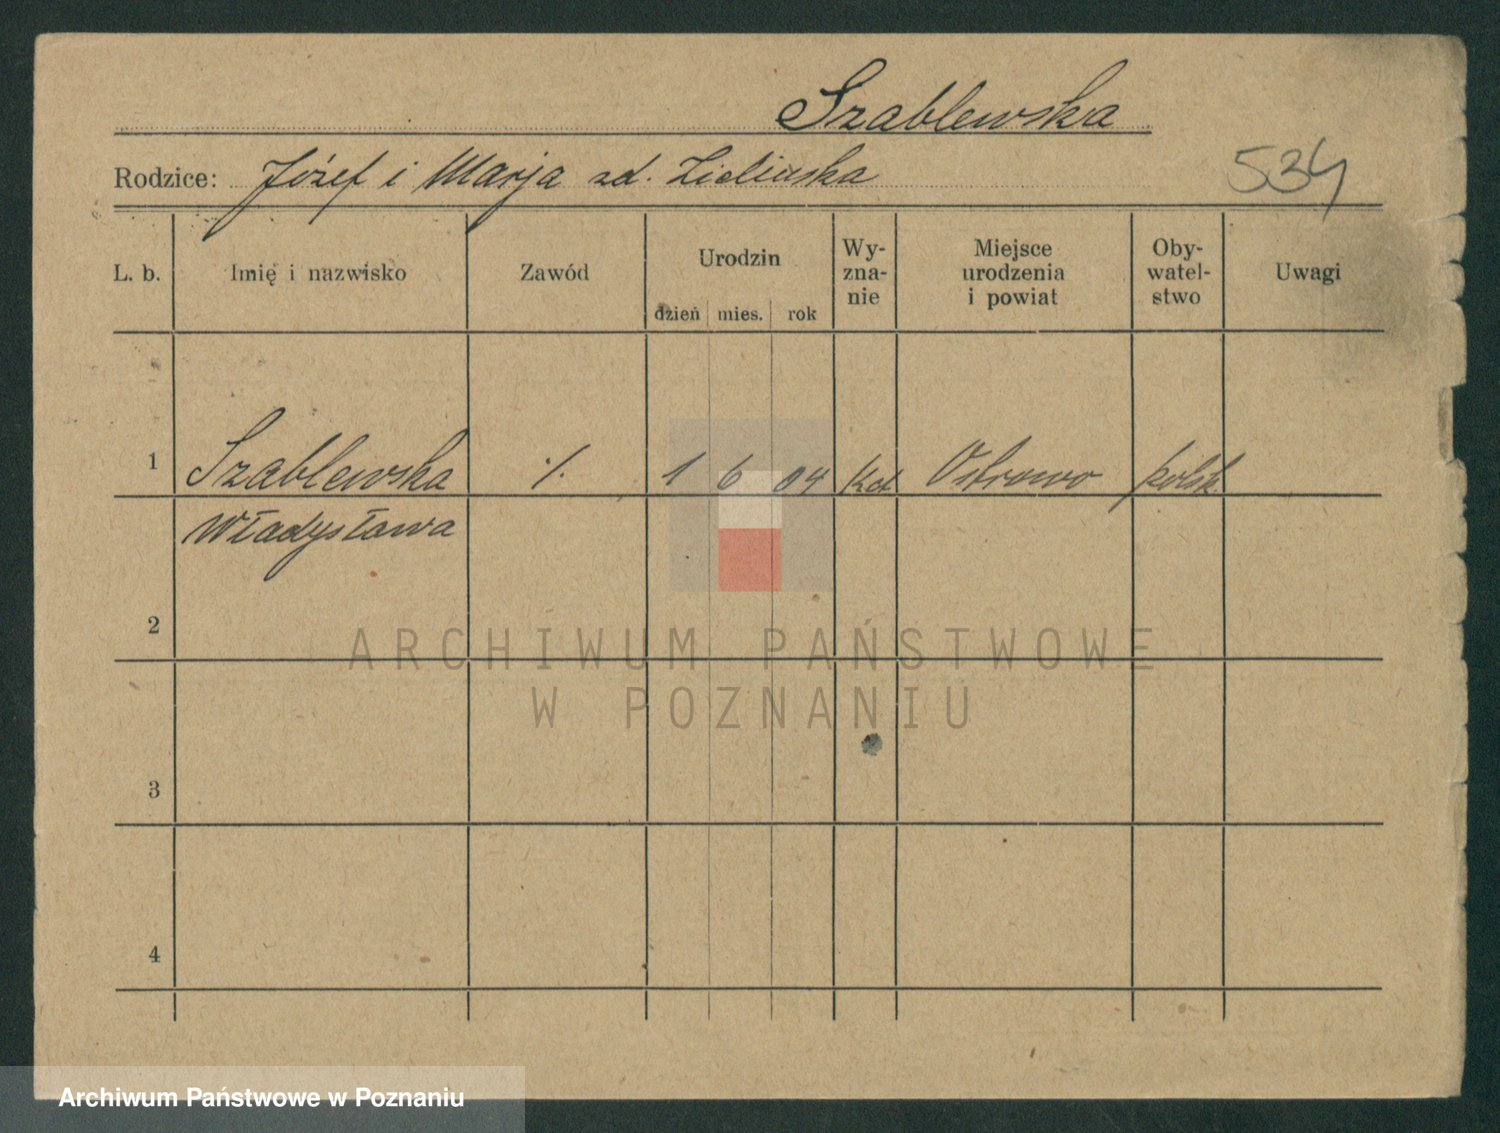 Szablewska
Rodzice: Józef i Marja zd. Zielinska
534
L. b.
Imię i nazwisko
Zawód
Urodzin
dzień mies. rok
Wy-
zna-
nie
Miejsce
urodzenia
i powiat
Oby-
watel-
stwo
Uwagi
1 Szablewska ·/. 1 6 04 Kat Ostrowo polsk.
Władysława
2
3
4
ARCHIWUM PAŃSTWOWE
W POZNANIU
Archiwum Państwowe w Poznaniu